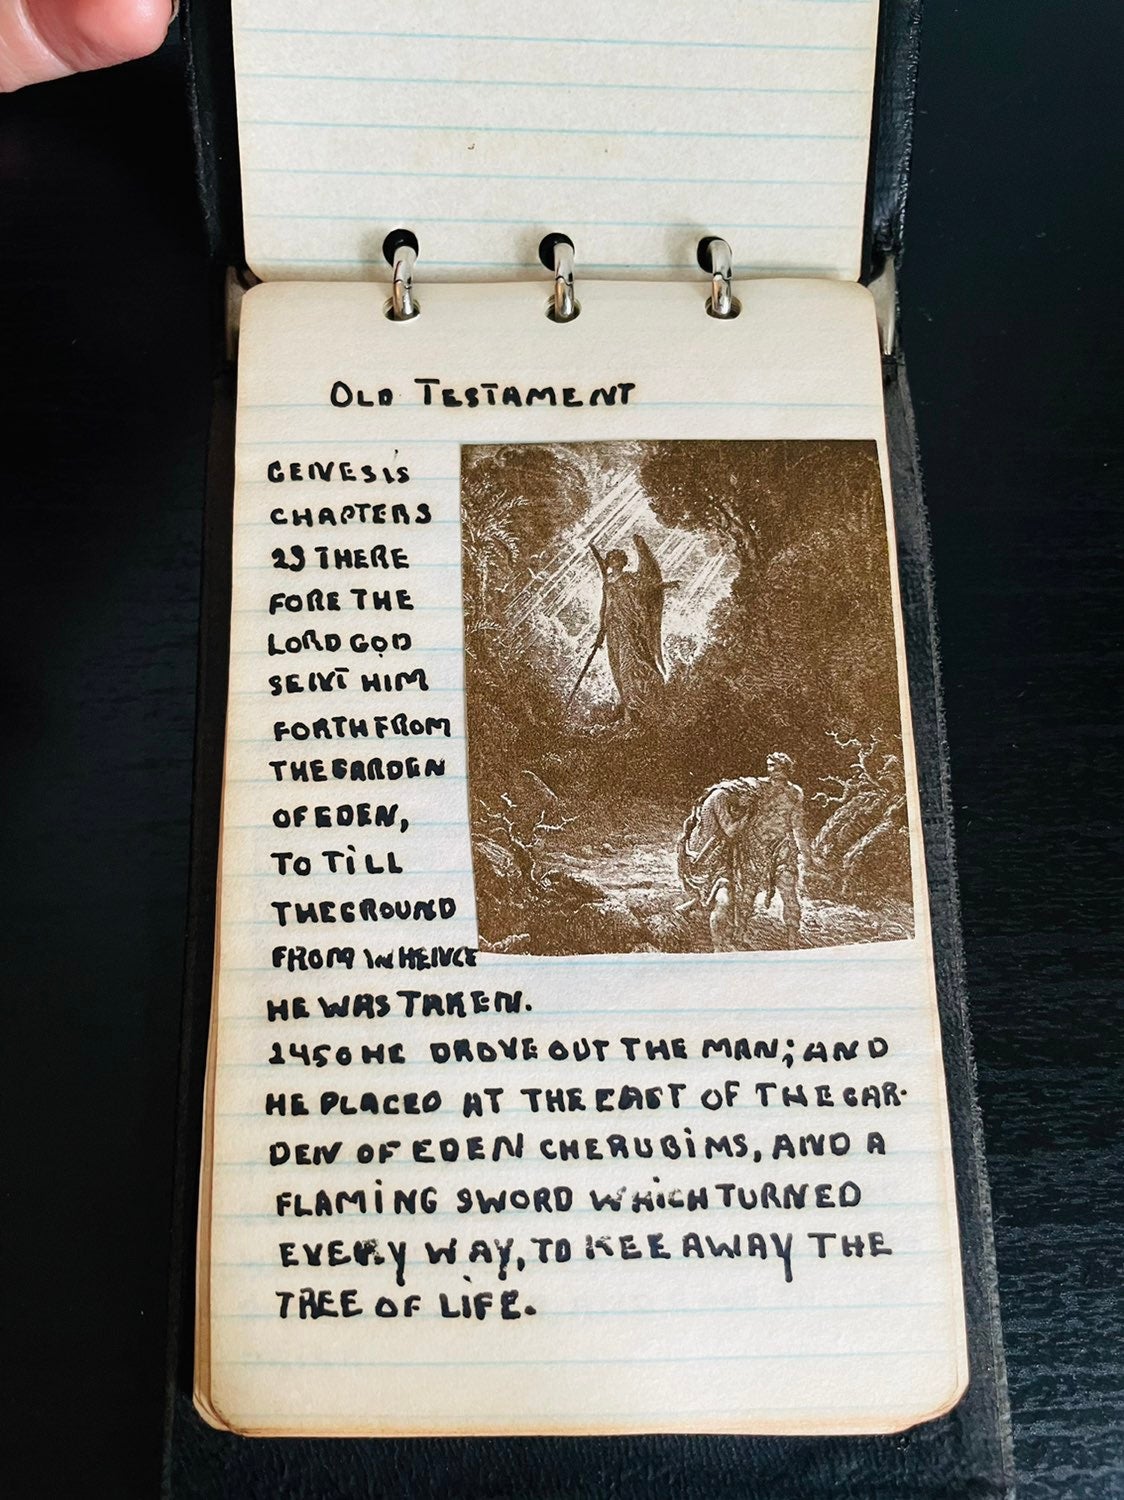 OLD TESTAMENT
GENESiS
CHAPTERS
23 THERE
FORE THE
LORD GOD
SENT HIM
FORTH FROM
THE GARDEN
OF EDEN,
TO TiLL
THE GROUND
FROM WHENCE
HE WAS TAKEN.
24 SO HE DROVE OUT THE MAN; AND
HE PLACED AT THE EAST OF THE GAR-
DEN OF EDEN CHERUBiMS, AND A
FLAMiNG SWORD WHiCH TURNED
EVERY WAY, TO KEE AWAY THE
TREE OF LiFE.